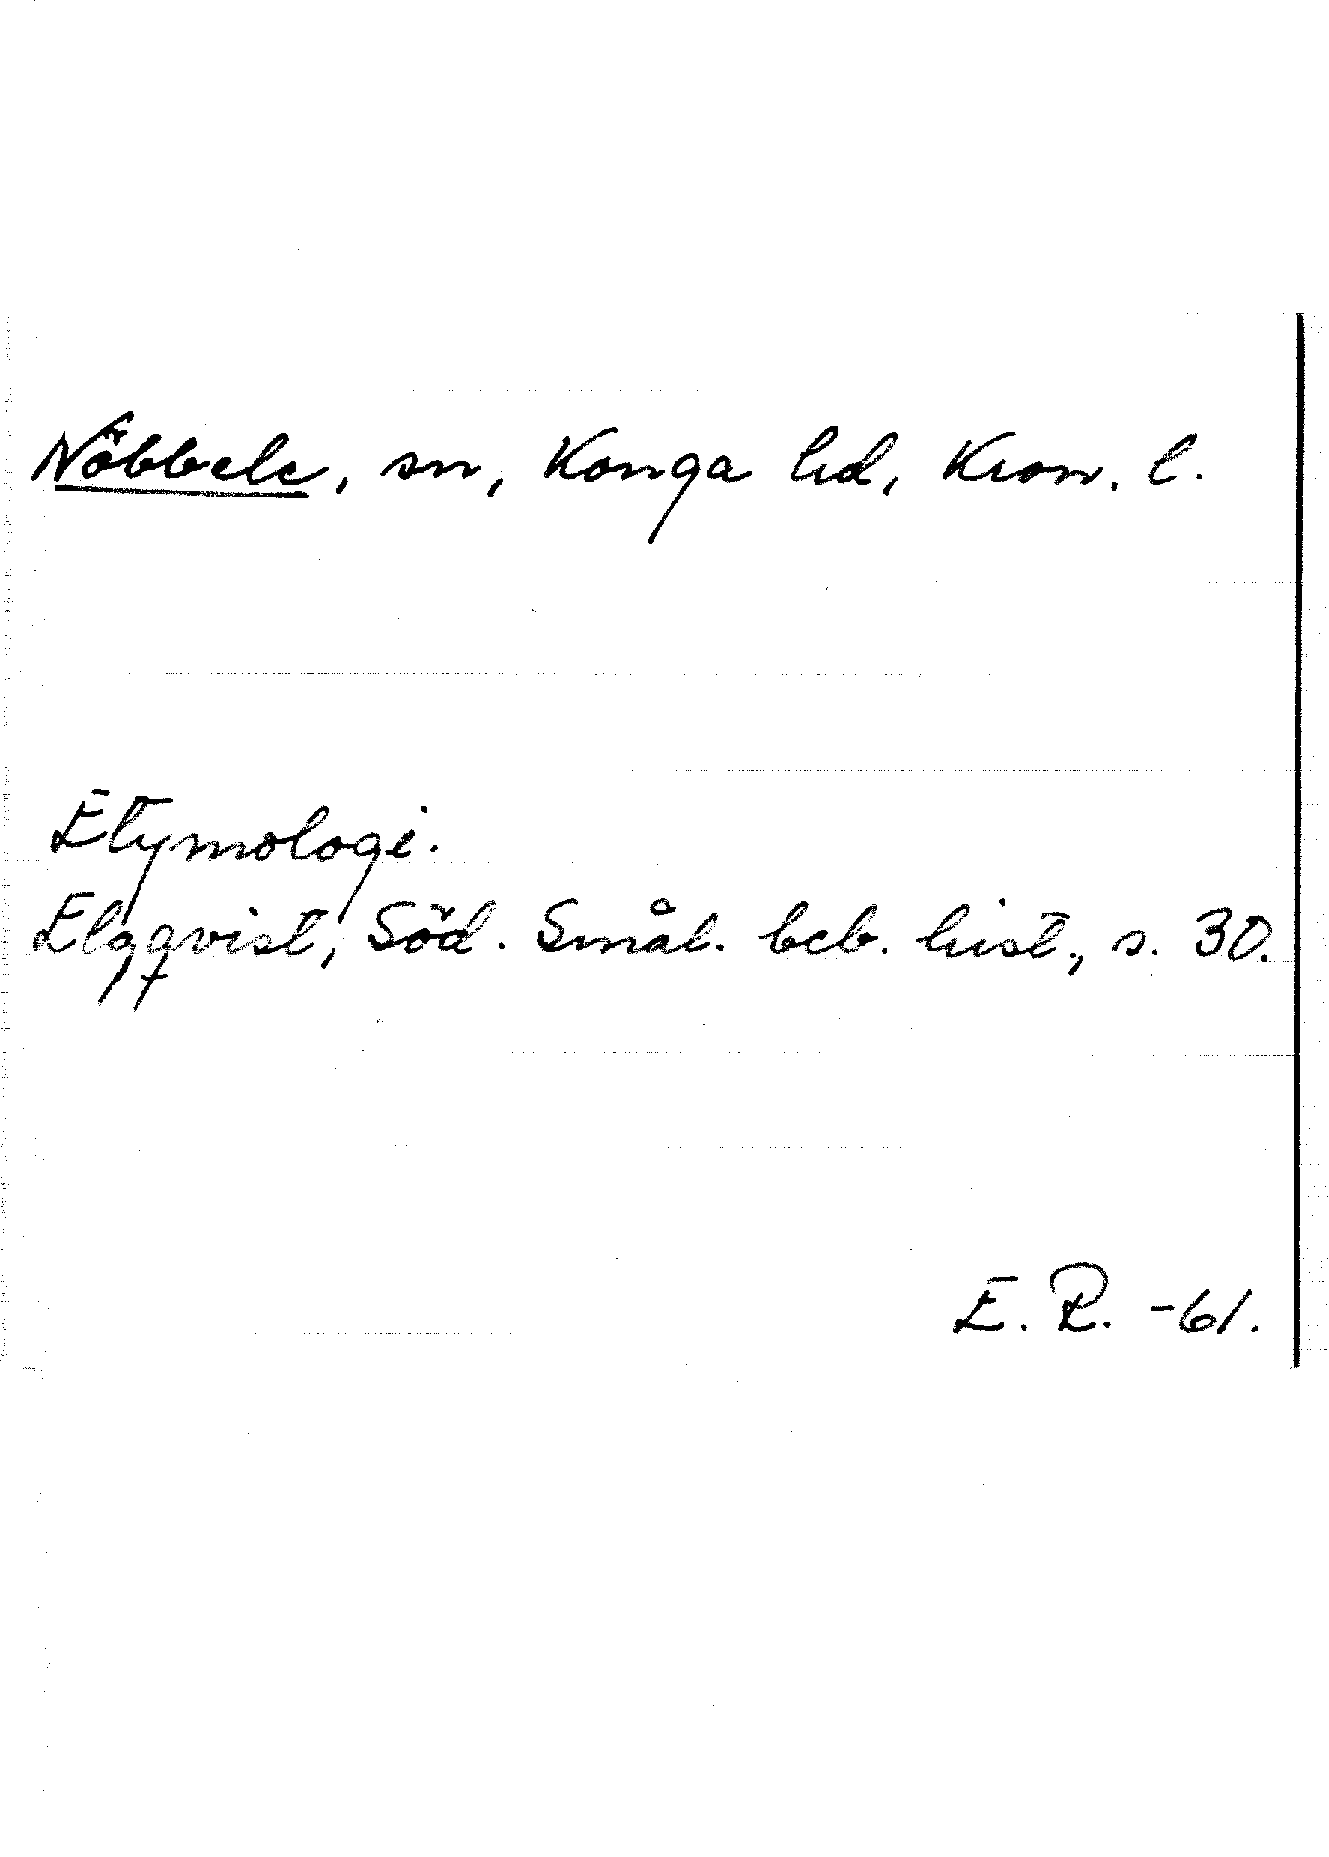 Nöbbele, sn, Konga hd, Kron. l.
Etymologi.
Elgqvist, Söd. Smål. beb. hist., s. 30.
E. R. -61.